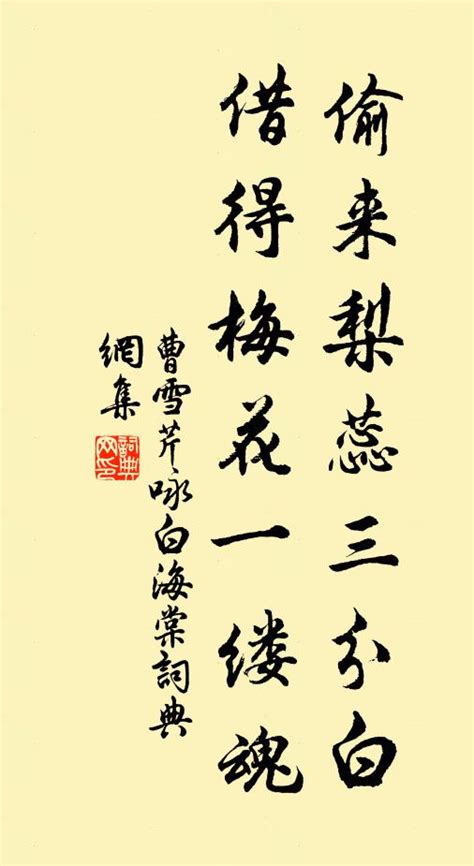 偷来梨蕊三分白
借得梅花一缕魂
曹雪芹咏白海棠詞典
網集
詞典网印